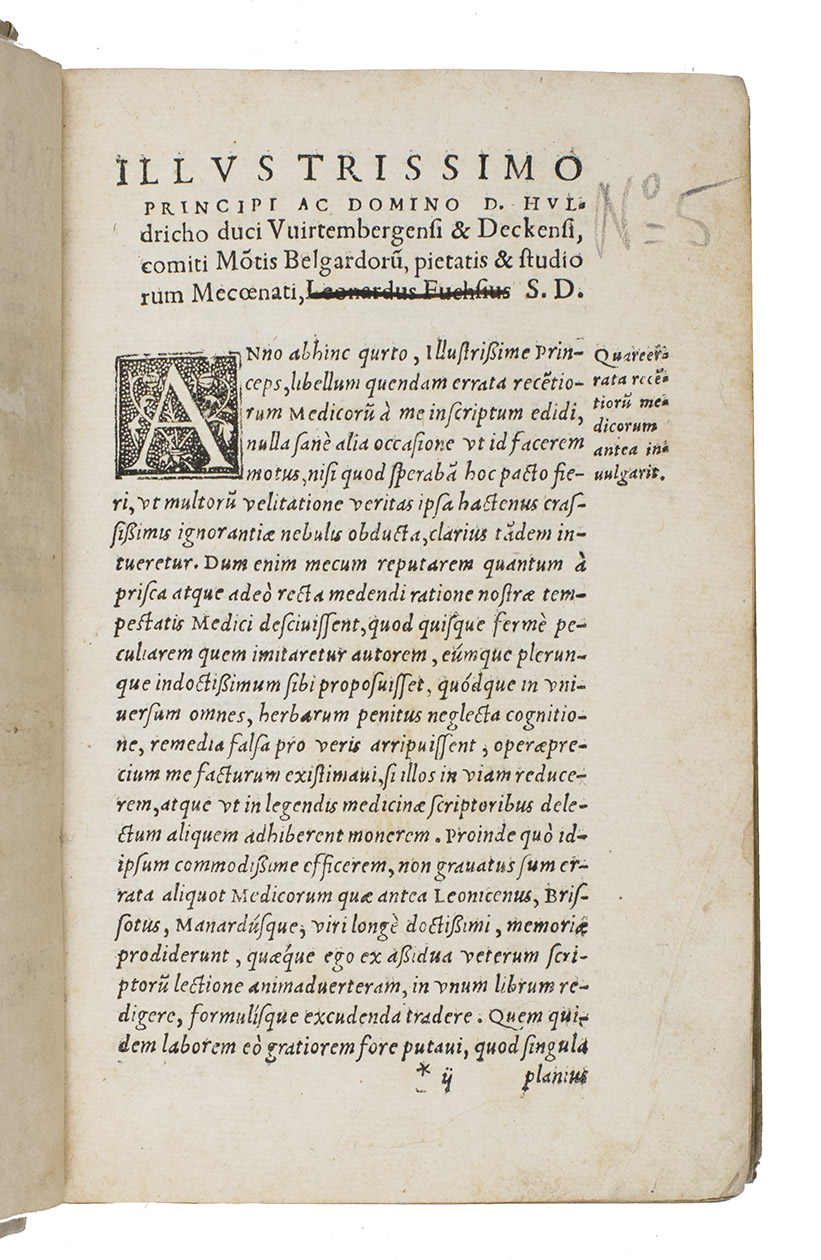 ILLVSTRISSIMO
PRINCIPI AC DOMINO D. HVL-
dricho duci Vuirtembergensi & Deckensi,
comiti Mõtis Belgardorũ, pietatis & studio
rum Mecœnati, Leonardus Fuchsius S. D.
Nº 5
ANno abhinc qurto, Illustrißime Prin-
ceps, libellum quendam errata recẽtio-
rum Medicorũ à me inscriptum edidi,
nulla sanè alia occasione vt id facerem
motus, nisi quod sperabã hoc pacto fie-
ri, vt multorũ velitatione veritas ipsa hactenus cras-
sißimis ignorantiæ nebulis obducta, clarius tãdem in-
tueretur. Dum enim mecum reputarem quantum à
prisca atque adeò recta medendi ratione nostræ tem-
pestatis Medici desciuissent, quod quisque fermè pe-
culiarem quem imitaretur autorem, eúmque plerun-
que indoctißimum sibi proposuisset, quódque in vni-
uersum omnes, herbarum penitus neglecta cognitio-
ne, remedia falsa pro veris arripuissent, operæpre-
cium me facturum existimaui, si illos in viam reduce-
rem, atque vt in legendis medicinæ scriptoribus dele-
ctum aliquem adhiberent monerem. Proinde quò id-
ipsum commodißime efficerem, non grauatus sum er-
rata aliquot Medicorum quæ antea Leonicenus, Bris-
sotus, Manardúsque, viri longè doctißimi, memoriæ
prodiderunt, quæque ego ex aßidua veterum scri-
ptorũ lectione animaduerteram, in vnum librum re-
digere, formulísque excudenda tradere. Quem qui-
dem laborem eò gratiorem fore putaui, quod singula
* ij planius
Quare er-
rata recẽ-
tiorũ me-
dicorum
antea in-
uulgarit.